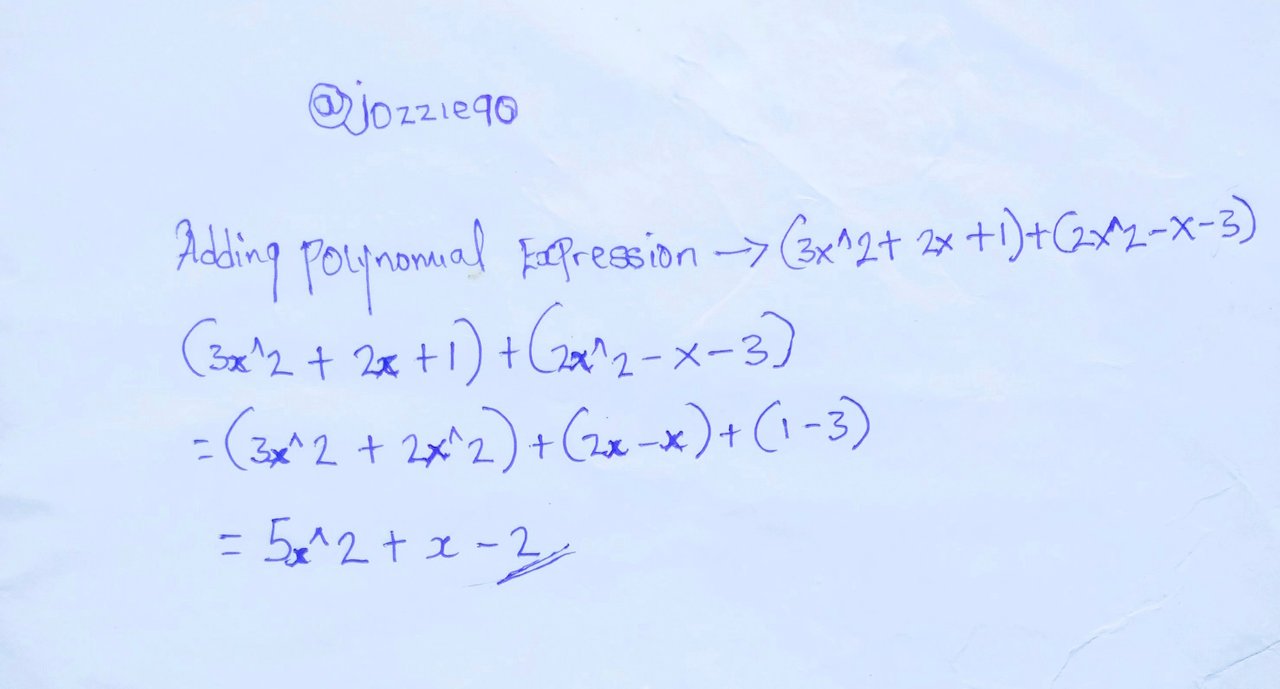 @jozzie90
Adding polynomial Expression → (3x^2+ 2x +1)+(2x^2-x-3)
(3x^2 + 2x +1) + (2x^2 - x - 3)
= (3x^2 + 2x^2) + (2x - x) + (1 - 3)
= 5x^2 + x - 2